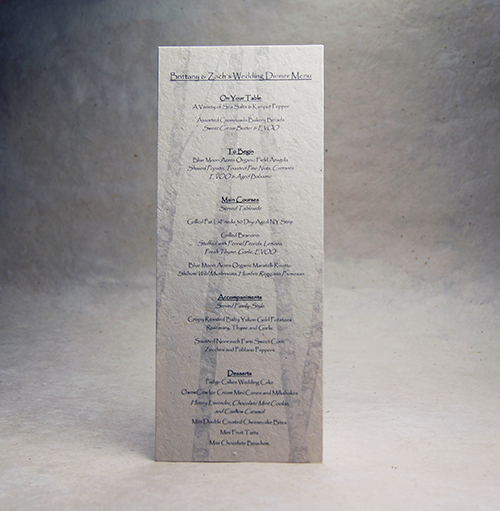 Brittany & Zach's Wedding Dinner Menu
On Your Table
A Variety of Sea Salts & Kampot Pepper
Assorted Bakery Breads
Sweet Cream Butter & EVOO
To Begin
Blue Moon Acres Organic Field Arugula
Shaved Pecorino, Toasted Pine Nuts, Currants
EVOO & Aged Balsamic
Main Courses
Served Tableside
Grilled Pat LaFrieda 30 Dry Aged NY Strip
Grilled Branzino
Stuffed with Fennel Fronds, Lemons
Fresh Thyme, Garlic, EVOO
Blue Moon Acres Organic Maratelli Risotto
Wild Mushrooms, Parmesan
Accompaniments
Served Family Style
Crispy Roasted Baby Yukon Gold Potatoes
Rosemary, Thyme and Garlic
Sautéed Farm Sweet Corn
Zucchini and Poblano Peppers
Desserts
Cakes Wedding Cake
Ice Cream Mini Cones and Milkshakes
Honey Lavender, Chocolate Mint Cookie,
and Caramel
Mini Double Crusted Cheesecake Bites
Mini Fruit Tarts
Mini Chocolate